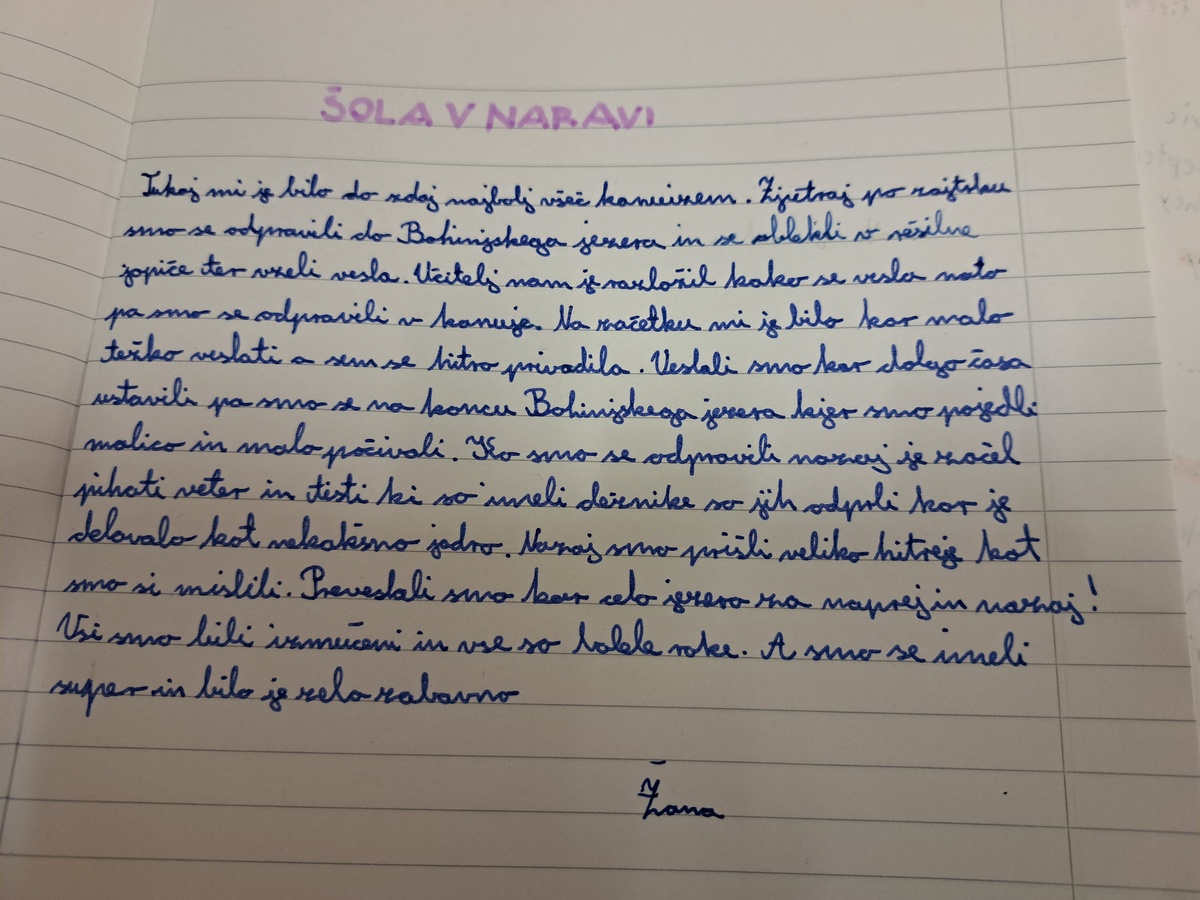 ŠOLA V NARAVI
Tukaj mi je bilo do zdaj najbolj všeč kanuizem. Zjutraj po zajtrku
smo se odpravili do Bohinjskega jezera in se oblekli v rešilne
jopiče ter vzeli vesla. Učitelj nam je razložil kako se vesla nato
pa smo se odpravili v kanuje. Na začetku mi je bilo kar malo
težko veslati a sem se hitro privadila. Veslali smo kar dolgo časa
ustavili pa smo se na koncu Bohinjskega jezera kjer smo pojedli
malico in malo počivali. Ko smo se odpravili nazaj je začel
pihati veter in tisti ki so imeli dežnike so jih odprli kar je
delovalo kot nekakšno jadro. Nazaj smo prišli veliko hitreje kot
smo si mislili. Preveslali smo kar celo jezero za naprej in nazaj!
Vsi smo bili izmučeni in vse so bolele roke. A smo se imeli
super in bilo je zelo zabavno
Žana